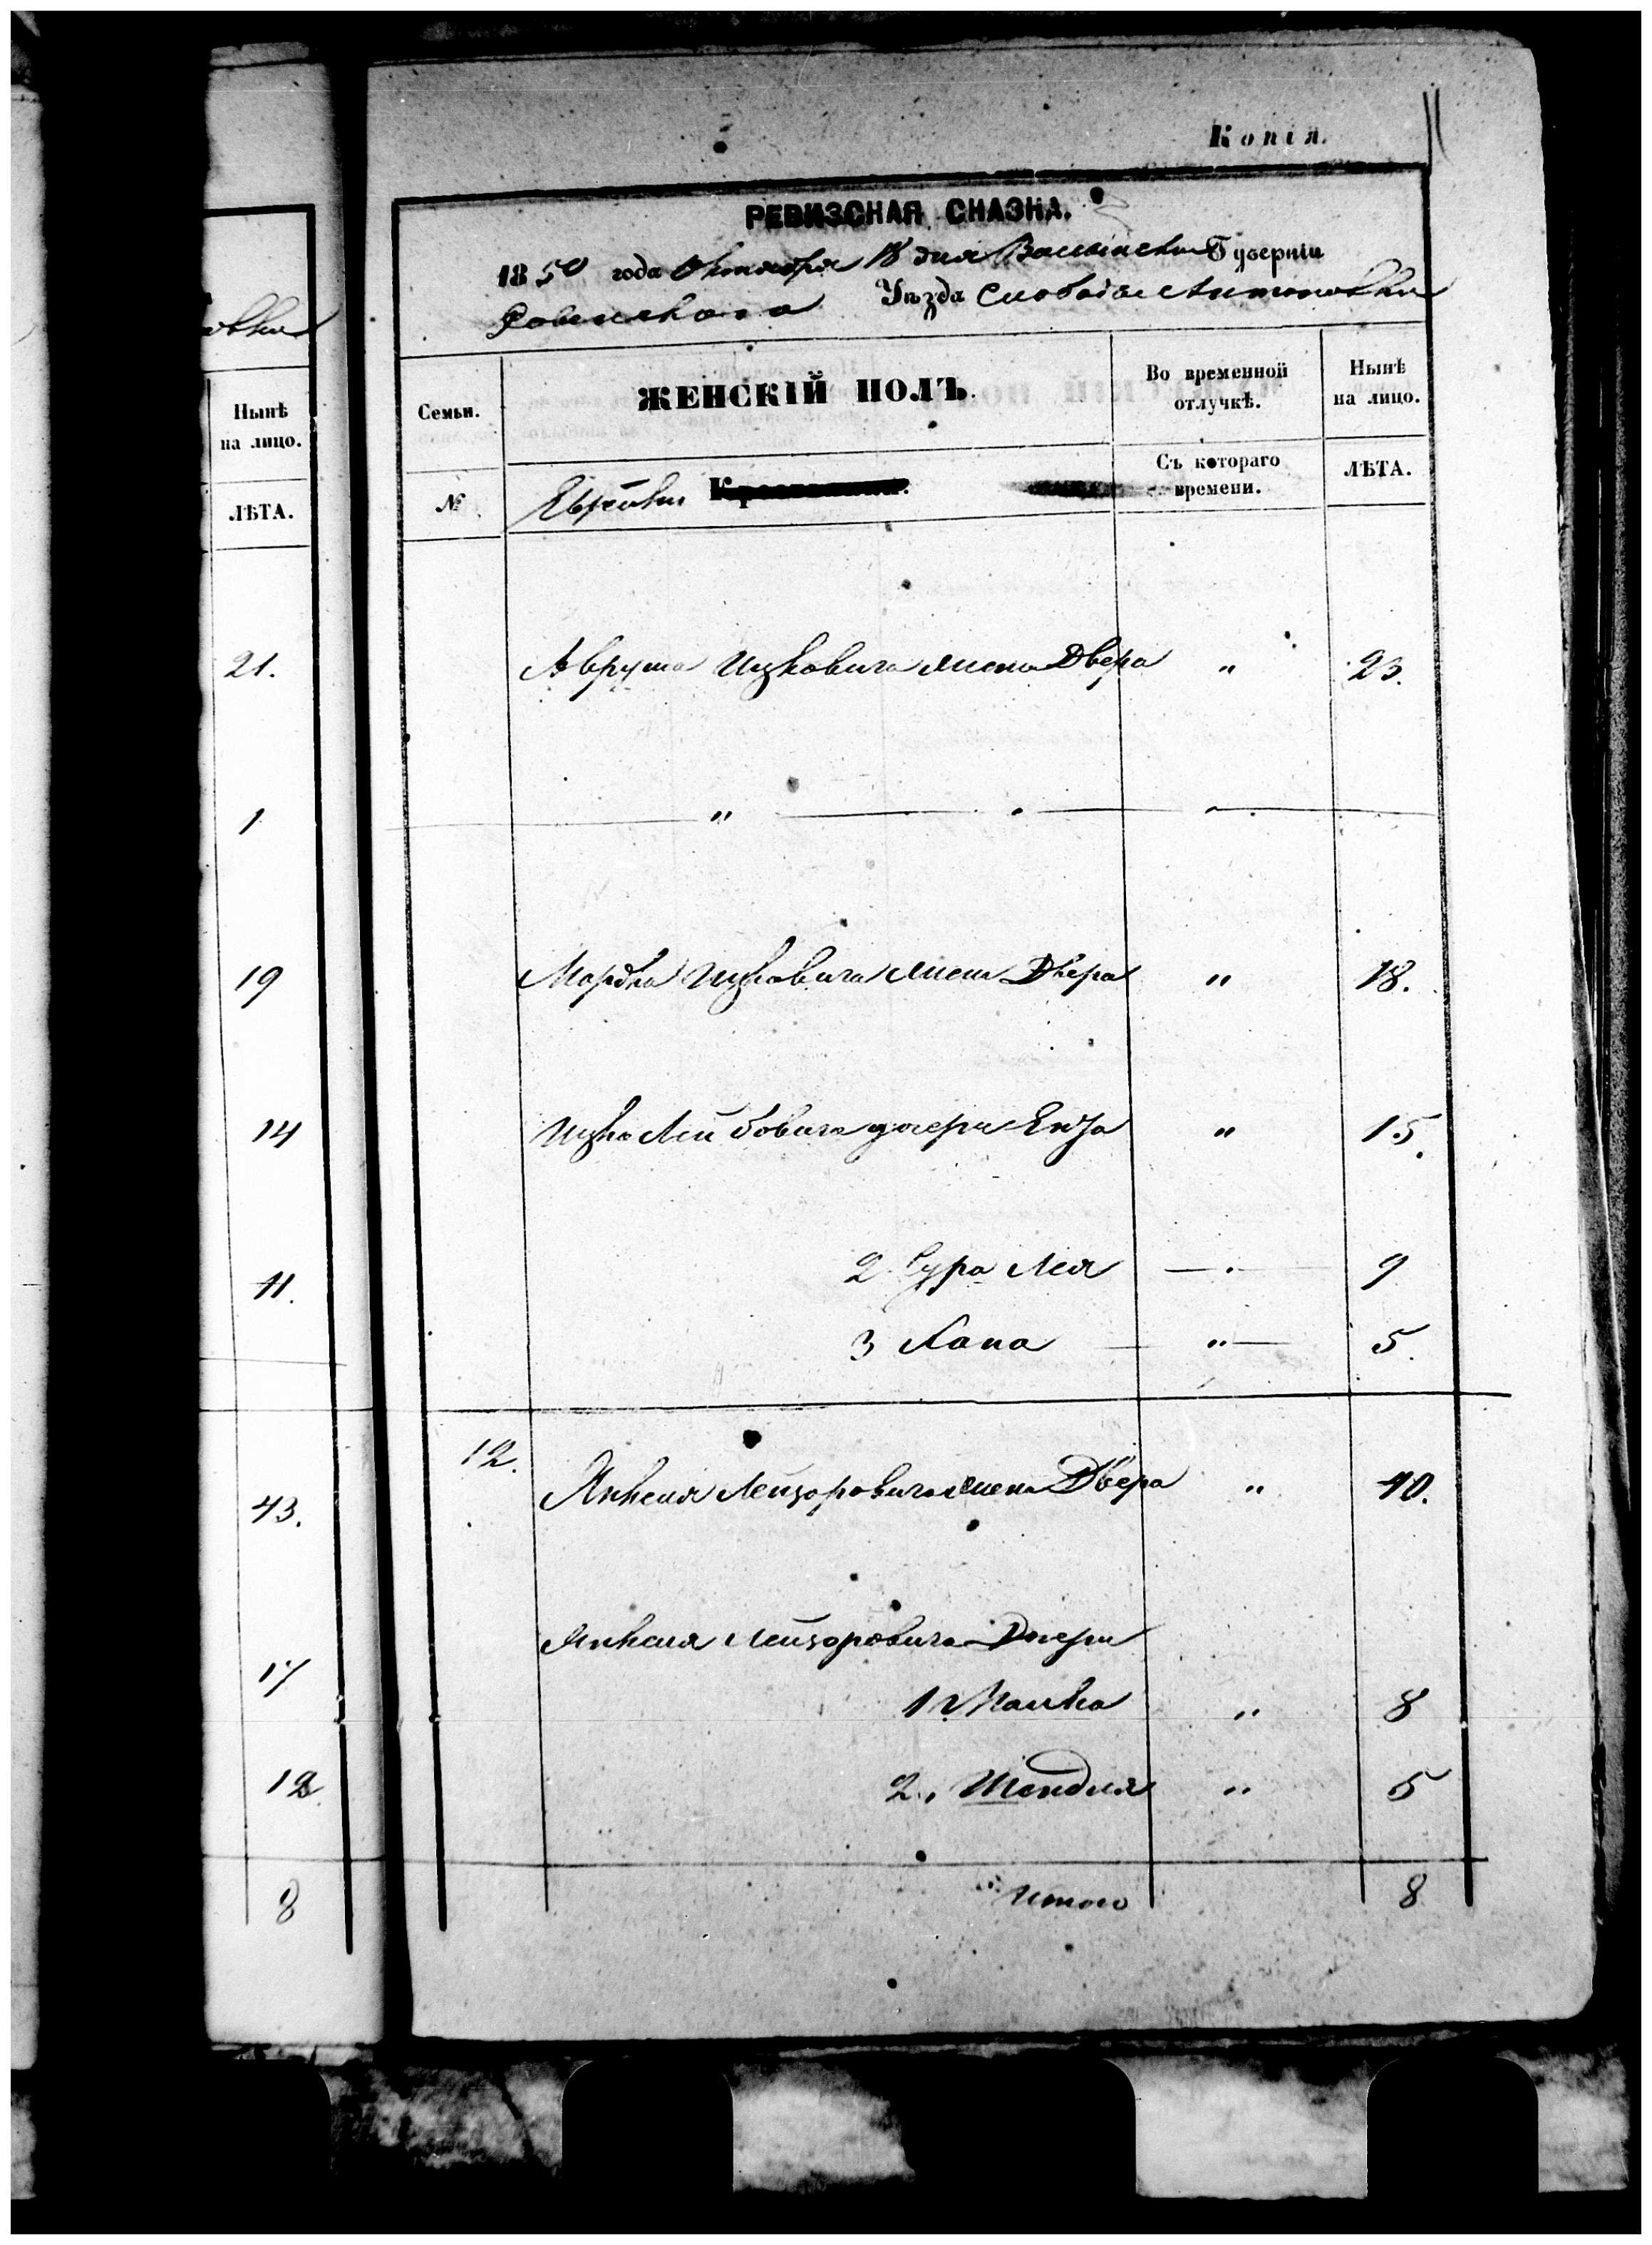 Копія.
РЕВИЗСКАЯ СКАЗКА.
1850 года Октября 18 дня Волынской Губерніи
Ровенскаго Уѣзда Слободы Антоновки
вки
Нынѣ
на лицо.
ЛѢТА.
Семьи.
ЖЕНСКІЙ ПОЛЪ.
Во временной
отлучкѣ.
Нынѣ
на лицо.
№
Еврейки
Съ котораго
времени.
ЛѢТА.
21. Аврума Ицковича жена Двера " 23.
1 "
19 Мордка Ицковича жена Двера " 18.
14 Ицка Лейбовича дочери " 15.
11. 2 Сура Лея 9
3 Хана " 5.
43. 12. Янкеля Лейзоровича жена Двера " 40.
Янкеля Лейзоровича Дочери
17 1 Малка " 8
12 2., Шендля " 5
8 Итого 8